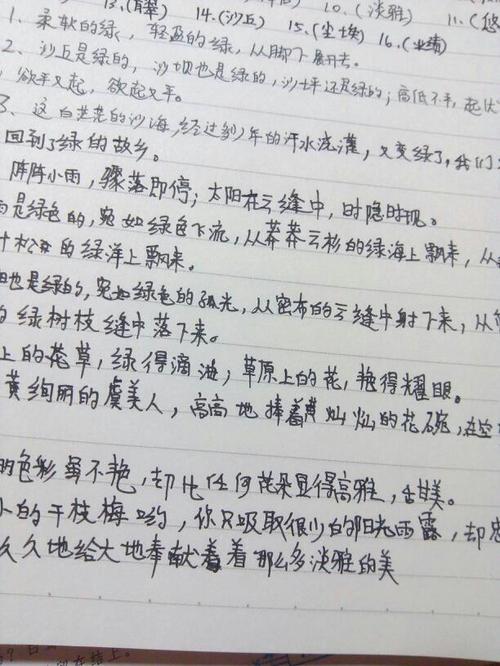 13.(翡翠) 14.(沙丘) 10.(淡雅) 11.(悠
15.(尘埃) 16.(业绩)
1、柔软的绿,轻盈的绿,从脚下展开去。
2、沙丘是绿的,沙坝也是绿的,沙坪还是绿的;高低不平,起伏
,欲平又起,欲起又平。
3、这白茫茫的沙海,经过多少年的汗水浇灌,又变绿了,我们
回到了绿的故乡。
阵阵小雨,骤落即停;太阳在云缝中,时隐时现。
雨是绿色的,宛如绿色下流,从莽莽云杉的绿海上飘来,从
叶松的绿洋上飘来。
阳也是绿的,宛如绿色的弧光,从密布的云缝中射下来,从
的绿树枝缝中落下来。
上的花草,绿得滴油;草原上的花,艳得耀眼。
黄绚丽的虞美人,高高地捧着黄灿灿的花碗,在空
的色彩虽不艳,却比任何花朵显得高雅,甜美。
小的干枝梅哟,你只吸取很少的阳光雨露,却
久久地给大地奉献着着那么多淡雅的美